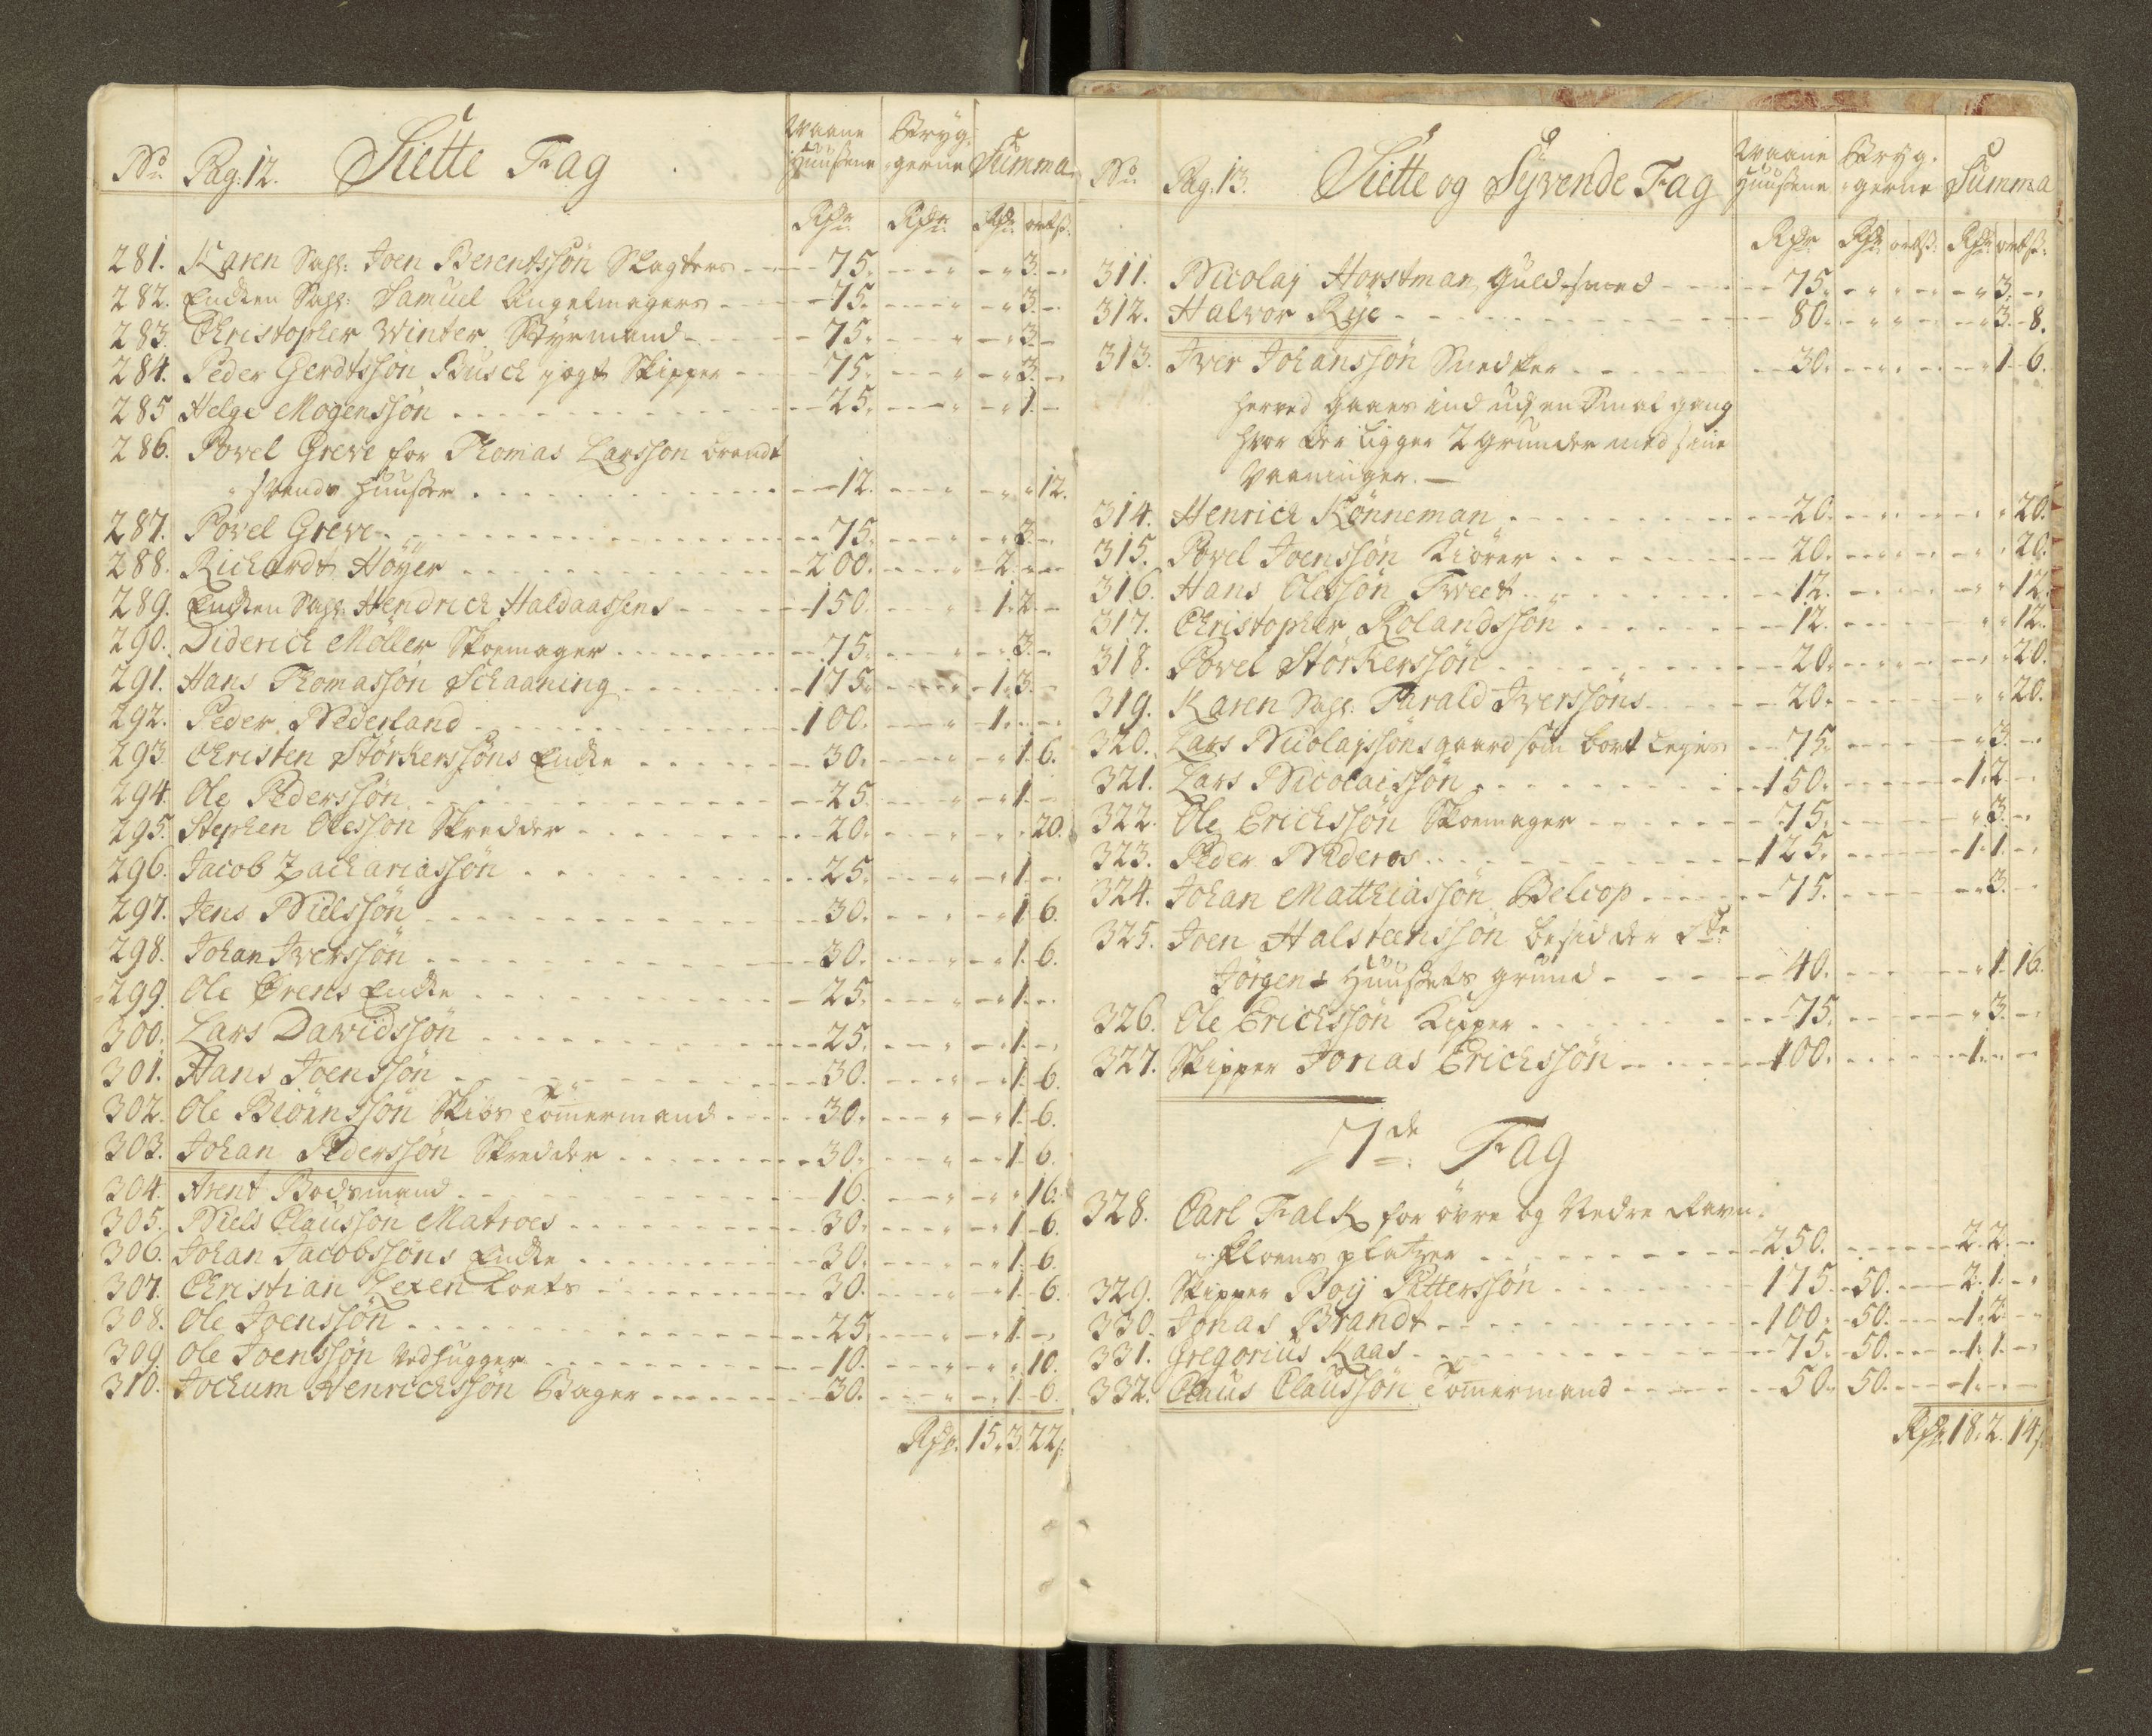 No. Pag: 12. Siette Fag Waane Huusene Bryg- gerne Summa
Rdr. Rdr. Rdr. ort ß.
281. Karen Sahl: Joen Berentssøn Slagters 75. 3.
282. Enken Sahl: Samuel Angelmagers 75. 3.
283. Christopher Winter Styrmand 75. 3.
284. Peder Gerdtssøn Busch jagt Skipper 75. 3.
285 Helge Mogenssøn 25. 1.
286. Povel Greve for Thomas Larsson
Huuser 12. 12.
287. Povel Greve 75. 3.
288. Richardt Höyer 200. 2.
289. Enken Sahl: Hendrich Haldaassens 150. 1. 2.
290. Diderich Möller Skoemager 75. 3.
291. Hans Thomassøn Schaaning 175. 1. 3.
292. Peder Nederland 100. 1.
293. Christen Störkerssøns Enke 30. 1. 6.
294. Ole Pederssøn 25. 1.
295. Stephen Olesson Skredder 20. 20.
296. Jacob Zachariassøn 25. 1.
297. Jens Nielssøn 30. 1. 6.
298. Johan Iverssøn 30. 1. 6.
299. Ole Ørens Enke 25. 1.
300. Lars Davidssøn 25. 1.
301. Hans Joenssøn 30. 1. 6.
302. Ole Biörnssøn Skibs Tømermand 30. 1. 6.
303. Johan Pederssøn Skredder 30. 1. 6.
304. Arent Bodsmand 16. 16.
305. Niels Claussøn Matroes 30. 1. 6.
306. Johan Jacobssøns Enke 30. 1. 6.
307. Christian Lexen Loets 30. 1. 6.
308. Ole Joenssøn 25. 1.
309. Ole Joenssøn Vedhugger 10. 10.
310. Jochum Henrichssøn Bager 30. 1. 6.
Rdr. 15. 3. 22ß.
No. Pag: 13. Siette og Syvende Fag Waane Huusene Bryg- gerne Summa
Rdr Rdr ort ß. Rdr ort ß.
311. Nicolaj Horstman, Guldsmed 75. 3.
312. Halvor Rye 80. 3. 8.
313. Iver Johanssøn Snedker 30. 1. 6.
Herved gaaes ind ud en Smal gang
hvor der ligger 2 grunder med sine
Vaaninger.
314. Henrich Könneman 20. 20.
315. Povel Joenssøn Kiörer 20. 20.
316. Hans Olessøn Tveet 12. 12.
317. Christopher Rolandssøn 12. 12.
318. Povel Storkerssøn 20. 20.
319. Karen Sahl: Farald Iverssøns 20. 20.
320. Lars Nicolajssøns gaard som bort leyes 75. 3.
321. Lars Nicolaissøn 150. 1. 2.
322. Ole Erichssøn Skoemager 75. 3.
323. Peder Nideros 125. 1. 1.
324. Johan Matthiassøn Belcop 75. 3.
325. Joen Halsteenssøn besidder Ste
Jörgens Huusets grund 40. 1. 16.
326. Ole Erichssøn Kipper 75. 3.
327. Skipper Jonas Erichssøn 100. 1.
7de Fag
328. Carl Falk for övre og Nedre Ravn-
Kloens platzer 250. 2. 2.
329. Skipper Boij Petterssøn 175. 50. 2. 1.
330. Jonas Brandt 100. 50. 1. 2.
331. Gregorius Kaas 75. 50. 1. 1.
332. Claus Claussøn Tømermand 50. 50. 1.
Rdr 18. 2. 14ß